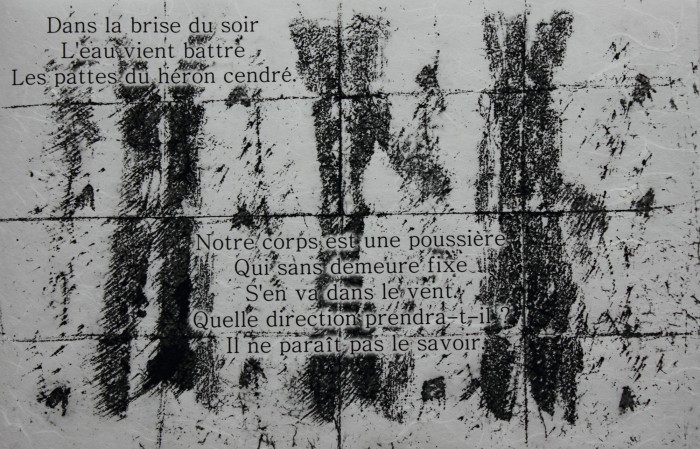 Dans la brise du soir
L'eau vient battre
Les pattes du héron cendré.
Notre corps est une poussière
Qui sans demeure fixe
S'en va dans le vent.
Quelle direction prendra-t-il ?
Il ne paraît pas le savoir.